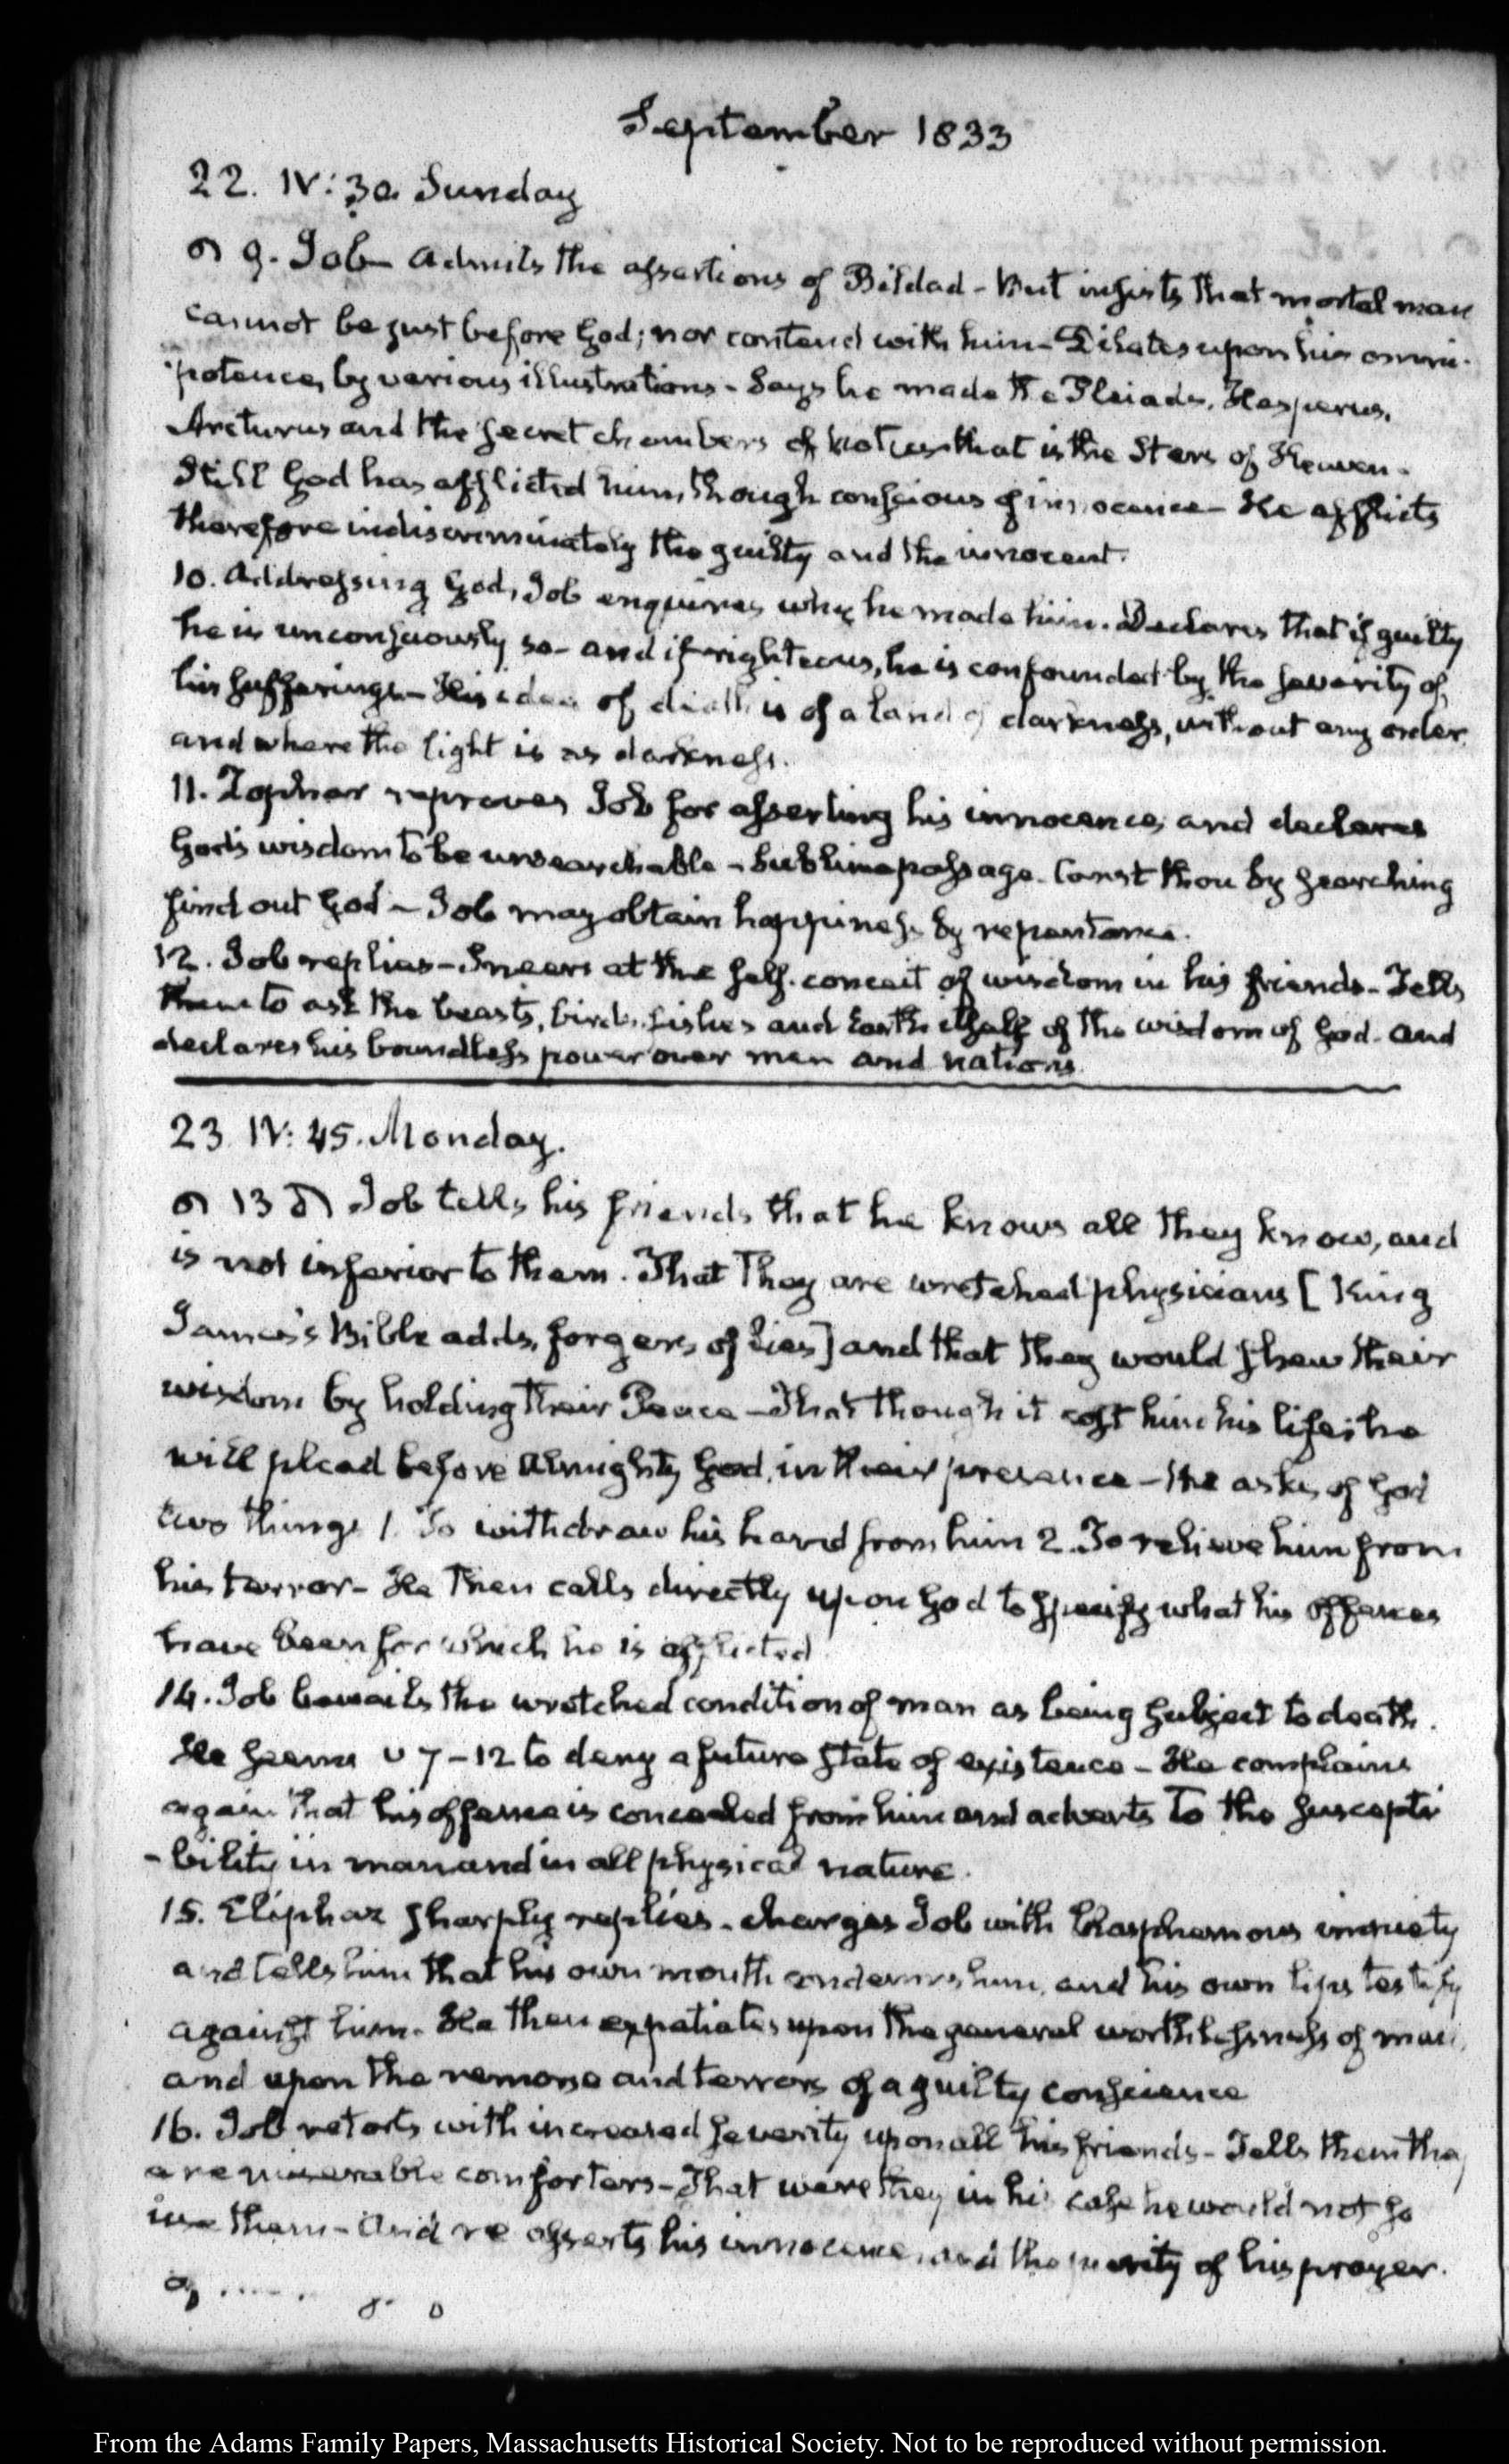 September 1833
22. IV: 30. Sunday
9. Job admits the assertions of Bildad - But insists that mortal man
cannot be just before God; nor contend with him - Dilates upon his omni-
potence, by various illustrations - Says he made the Pleiades, Hesperus,
Arcturus and the secret chambers of that is the Stars of Heaven -
Still God has afflicted him, though conscious of innocence - He afflicts
therefore indiscriminately the guilty and the innocent.
10. Addressing God, Job enquires why he made him. Declares that if guilty
he is unconsciously so - and if righteous, he is confounded by the severity of
his sufferings - His idea of death is of a land of darkness, without any order
and where the light is as darkness.
11. Zophar reproves Job for asserting his innocence, and declares
God's wisdom to be unsearchable - Sublime passage. Canst thou by searching
find out God - Job may obtain happiness by repentance.
12. Job replies - Sneers at the self-conceit of wisdom in his friends - Tells
them to ask the beasts, birds, fishes and Earth itself of the wisdom of God - and
declares his boundless power over men and nations.
23. IV: 45. Monday.
13 Job tells his friends that he knows all they know, and
is not inferior to them. That They are wretched physicians [King
James's Bible adds, forgers of lies] and that they would shew their
wisdom by holding their Peace - That though it cost him his life, he
will plead before Almighty God, in their presence - He asks of God
two things 1. To withdraw his hand from him 2. To relieve him from
his terror - He Then calls directly upon God to specify what his offences
have been for which he is afflicted
14. Job bewails the wretched condition of man as being subject to death.
He seems v 7-12 to deny a future state of existence - He complains
again that his offence is concealed from him and adverts to the suscepti
-bility in man and in all physical nature.
15. Eliphaz sharply replies - charges Job with blasphemous impiety
and tells him that his own mouth condemns him, and his own lips testify
against him. He then expatiates upon the general worthlessness of man,
and upon the remorse and terrors of a guilty conscience
16. Job retorts with increased severity upon all his friends - Tells them they
are miserable comforters - That were they in his case he would not so
use them - And re asserts his innocence, and the purity of his prayer.
From the Adams Family Papers, Massachusetts Historical Society. Not to be reproduced without permission.